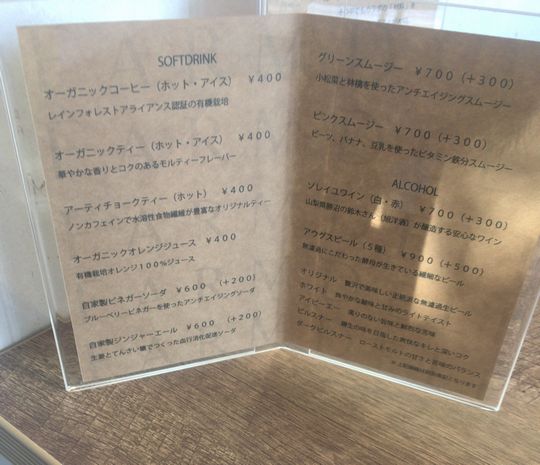 SOFTDRINK
オーガニックコーヒー（ホット・アイス） ￥400
レインフォレストアライアンス認証の有機栽培
オーガニックティー（ホット・アイス） ￥400
華やかな香りとコクのあるモルティーフレーバー
アーティチョークティー（ホット） ￥400
ノンカフェインで水溶性食物繊維が豊富なオリジナルティー
オーガニックオレンジジュース ￥400
有機栽培オレンジ100％ジュース
自家製ビネガーソーダ ￥600 （＋200）
ブルーベリービネガーを使ったアンチエイジングソーダ
自家製ジンジャーエール ￥600 （＋200）
生姜とてんさい糖でつくった血行消化促進ソーダ
グリーンスムージー ￥700（＋300）
小松菜と林檎を使ったアンチエイジングスムージー
ピンクスムージー ￥700（＋300）
ビーツ、バナナ、豆乳を使ったビタミン鉄分スムージー
ALCOHOL
ソレイユワイン（白・赤） ￥700（＋300）
山梨県勝沼の鈴木さん（旭洋酒）が醸造する安心なワイン
アウグスビール（5種） ￥900（＋500）
無濾過にこだわった酵母が生きている繊細なビール
オリジナル 贅沢で美味しい正統派な無濾過生ビール
ホワイト 爽やかな酸味と甘みのライトテイスト
アイピーエー 濁りのない旨味と鮮烈な苦味
ピルスナー 麦生の味を目指した爽快なキレと深いコク
ダークピルスナー ローストモルトの甘さと苦味のバランス